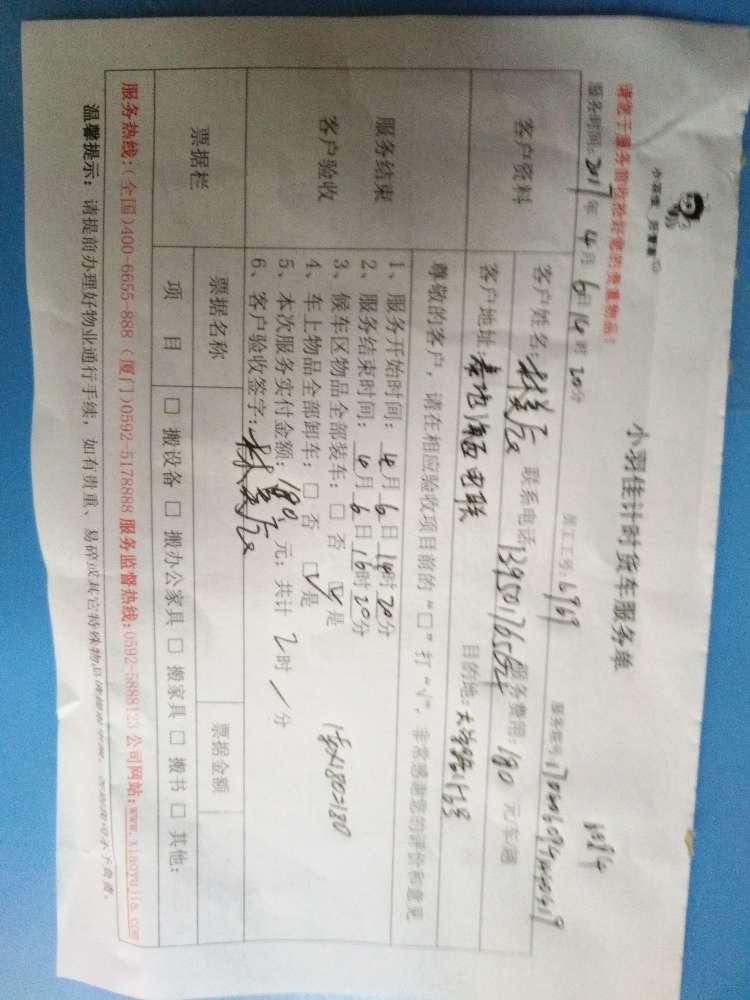 小羽佳计时货车服务单
请您于服务前收拾好您的贵重物品!
员工工号:6969
服务时间:2017年4月6日14时20分
客户资料
客户姓名:
联系电话
服务费用:180元/车趟
客户地址:
目的地:
尊敬的客户,请在相应验收项目前的“□”打“√”,非常感谢您的评价和意见
服务结束
客户验收
1、服务开始时间:4月6日14时20分
2、服务结束时间:4月6日16时20分
3、候车区物品全部装车:□否 ☑是
4、车上物品全部卸车:□否 ☑是
5、本次服务实付金额:180元;共计2时/分
6、客户验收签字:
票据栏
票据名称
票据金额
项 目
□搬设备 □搬办公家具 □搬家具 □搬书 □其他:
服务热线:(全国)400-6655-888 (厦门)0592-5178888 服务监督热线:0592-5888123 公司网站:www.xiaoyujia.com
温馨提示:请提前办理好物业通行手续,如有贵重、易碎或其它特殊物品